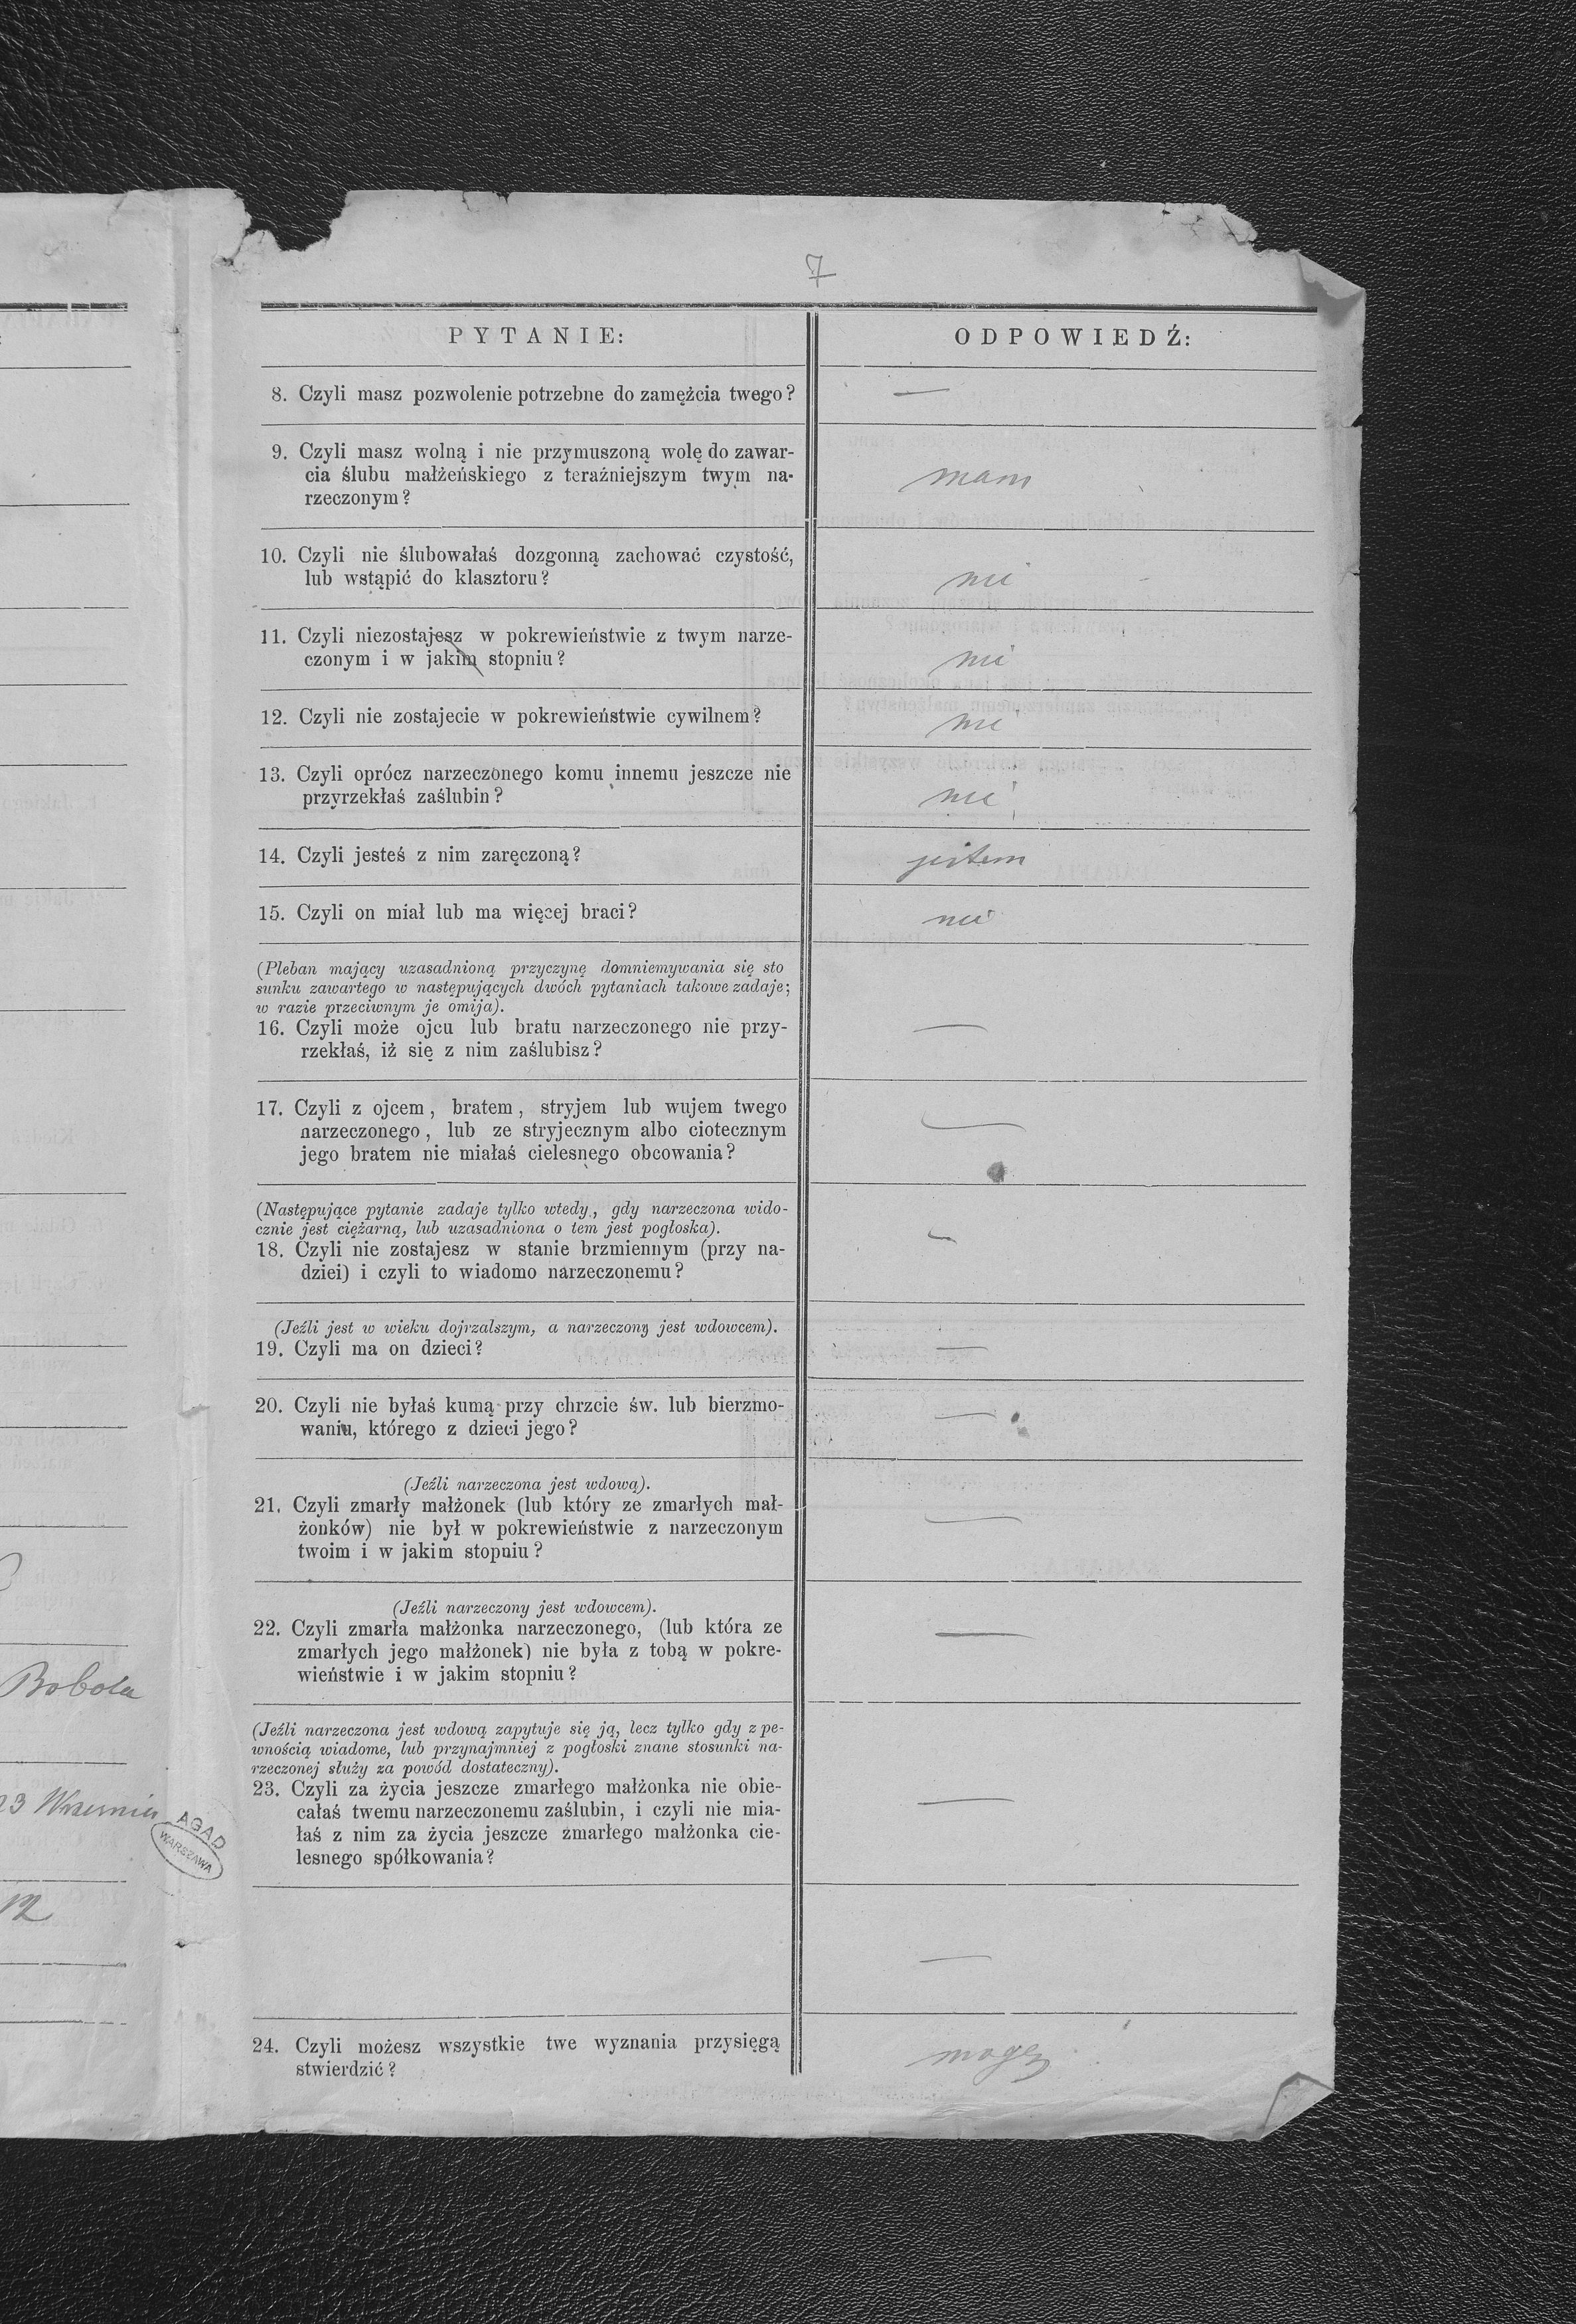 7
PYTANIE: ODPOWIEDŹ:
8. Czyli masz pozwolenie potrzebne do zamężcia twego? —
9. Czyli masz wolną i nie przymuszoną wolę do zawar-
cia ślubu małżeńskiego z teraźniejszym twym na-
rzeczonym?
mam
10. Czyli nie ślubowałaś dozgonną zachować czystość,
lub wstąpić do klasztoru?
nie
11. Czyli niezostajesz w pokrewieństwie z twym narze-
czonym i w jakim stopniu?
nie
12. Czyli nie zostajecie w pokrewieństwie cywilnem?
nie
13. Czyli oprócz narzeczonego komu innemu jeszcze nie
przyrzekłaś zaślubin?
nie
14. Czyli jesteś z nim zaręczoną?
jestem
15. Czyli on miał lub ma więcej braci?
nie
(Pleban mający uzasadnioną przyczynę domniemywania się sto
sunku zawartego w następujących dwóch pytaniach takowe zadaje;
w razie przeciwnym je omija).
16. Czyli może ojcu lub bratu narzeczonego nie przy-
rzekłaś, iż się z nim zaślubisz?
—
17. Czyli z ojcem, bratem, stryjem lub wujem twego
narzeczonego, lub ze stryjecznym albo ciotecznym
jego bratem nie miałaś cielesnego obcowania?
—
(Następujące pytanie zadaje tylko wtedy, gdy narzeczona wido-
cznie jest ciężarną, lub uzasadniona o tem jest pogłoska).
18. Czyli nie zostajesz w stanie brzmiennym (przy na-
dziei) i czyli to wiadomo narzeczonemu?
—
(Jeźli jest w wieku dojrzalszym, a narzeczony jest wdowcem).
19. Czyli ma on dzieci?
—
20. Czyli nie byłaś kumą przy chrzcie św. lub bierzmo-
waniu, którego z dzieci jego?
—
(Jeźli narzeczona jest wdową).
21. Czyli zmarły małżonek (lub który ze zmarłych mał-
żonków) nie był w pokrewieństwie z narzeczonym
twoim i w jakim stopniu?
—
(Jeźli narzeczony jest wdowcem).
22. Czyli zmarła małżonka narzeczonego, (lub która ze
zmarłych jego małżonek) nie była z tobą w pokre-
wieństwie i w jakim stopniu?
—
(Jeźli narzeczona jest wdową zapytuje się ją, lecz tylko gdy z pe-
wnością wiadome, lub przynajmniej z pogłoski znane stosunki na-
rzeczonej służy za powód dostateczny).
23. Czyli za życia jeszcze zmarłego małżonka nie obie-
całaś twemu narzeczonemu zaślubin, i czyli nie mia-
łaś z nim za życia jeszcze zmarłego małżonka cie-
lesnego spółkowania?
—
—
24. Czyli możesz wszystkie twe wyznania przysięgą
stwierdzić?
mogę
Bobola
23 Września
12
AGAD
WARSZAWA